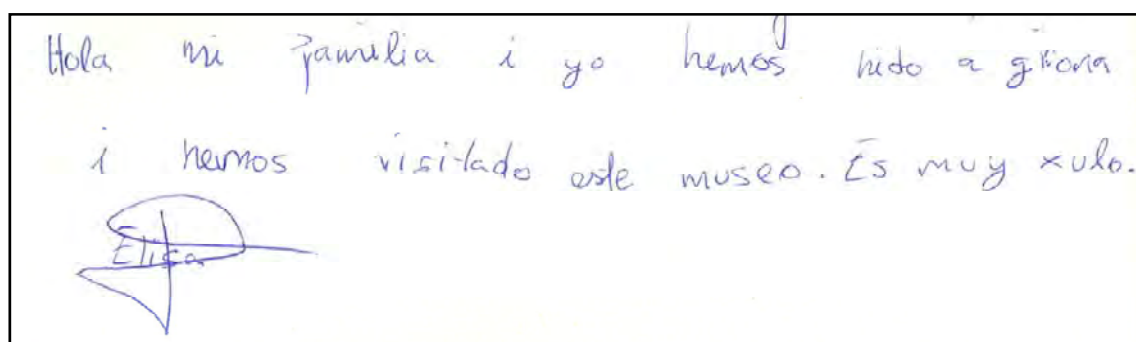 Hola mi familia i yo hemos hido a girona
i hemos visitado este museo. Es muy xulo.
Elisa